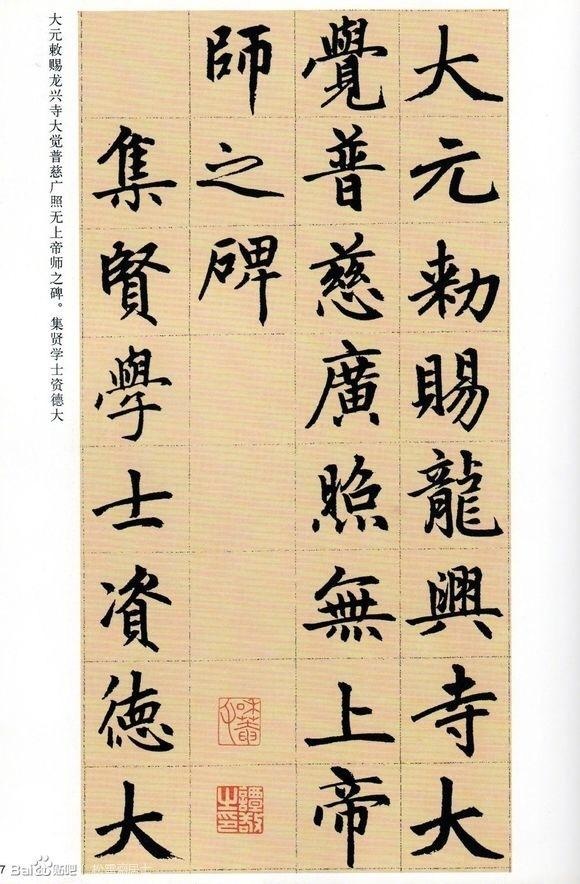 大元敕赐龙兴寺大觉普慈广照无上帝师之碑。集贤学士资德大
大元勅賜龍興寺大
覺普慈廣照無上帝
師之碑
集賢學士資德大
7
Bai贴吧